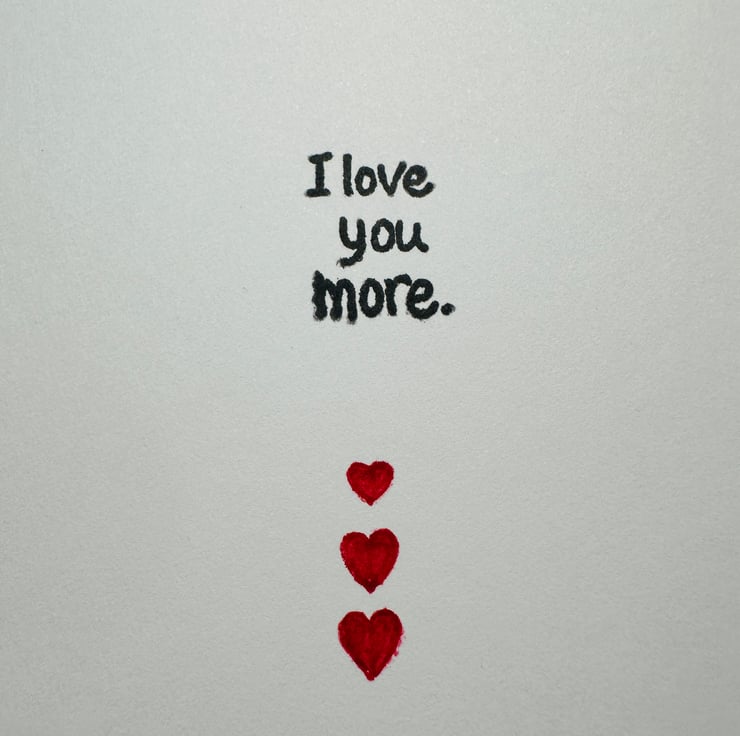 I love
you
more.